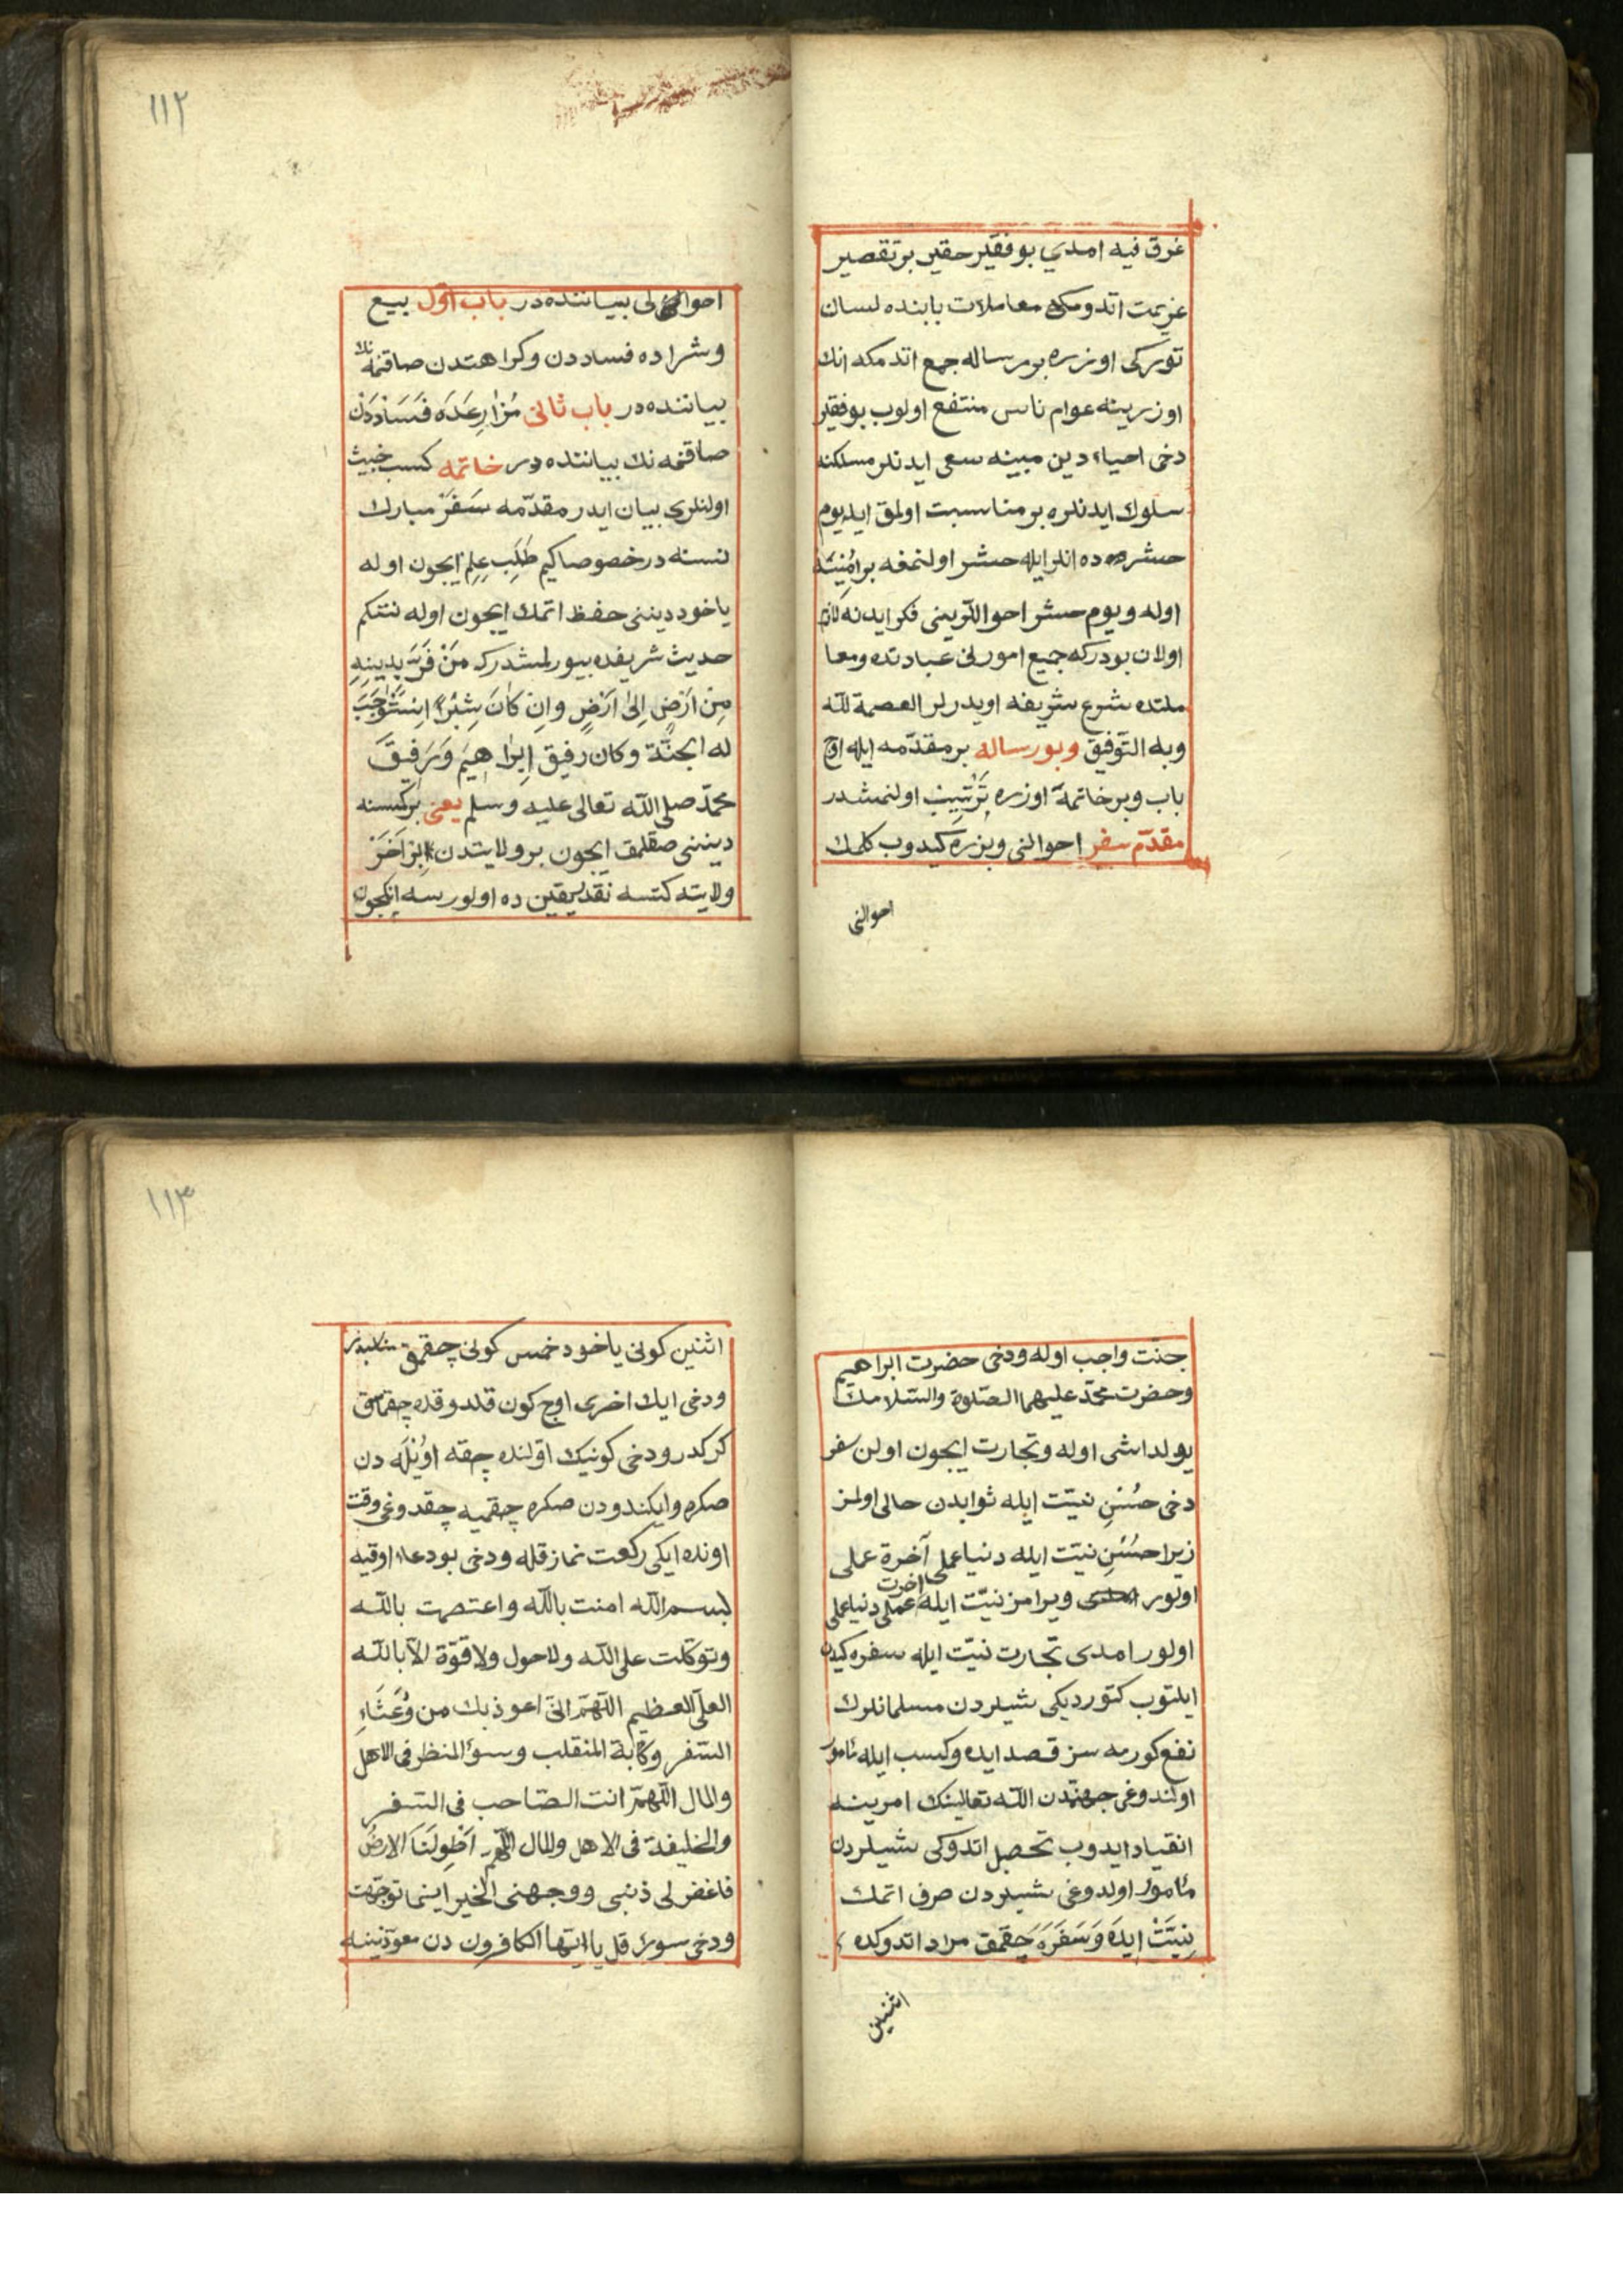 غرق فيه امدي بو فقير حقير بر تقصير
عزيمت اتدومكه معاملات بابنده لسان
توركى اوزره بر رساله جمع اتدمكه انك
اوزرينه عوام ناس منتفع اولوب بو فقير
دخى احياء دين مبينه سعى ايدنلر مسلكنه
سلوك ايدنلره بر مناسبت اولمق ايله يوم
حشرده ده انلر ايله حشر اولنمغه بر امنيته
اوله ويوم حشر احوالرينى فكر ايدنه لازم
اولان بودركه جميع امورنى عبادتده ومعا
ملتده شرع شريفه اويدرلر العصمة لله
وبه التوفيق وبو رساله بر مقدمه ايله اوچ
باب وبر خاتمه اوزره ترتيب اولنمشدر
مقدم سفر احوالنى ويزره كيدوب كلمك
احوالنى
١١٢
احوالى بياننده در باب اول بيع
وشراده فساددن وكراهتدن صاقنمه نك
بياننده در باب ثانى مزارعَدَه فَسَادْدَنْ
صاقنمه نك بياننده در خاتمه كسب خبيث
اولنلرى بيان ايدر مقدّمه سَفَرْ مبارك
نسنه در خصوصا كيم طَلَبِ عِلِمْ ايچون اوله
ياخود دينى حفظ اتمك ايچون اوله نتكم
حديث شريفده بيورلمشدركه مَنْ فَرَّ بِدِينِهِ
مِنْ اَرْضٍ اِلىٰ اَرْضٍ وانِ كَانَ شِبْرًا اِسْتَوْجَبَ
له الجنّة وكان رفيق اِبْرَاهِيمَ وَرَفِيقَ
محمّد صلى الله تعالى عليه وسلم يعنى بر كيسنه
دينى صقلمق ايچون بر ولايتدن بِرْ اَخَرْ
ولايته كتسه نقدر يقين ده اولورسه انكچون
جنّت واجب اوله ودخى حضرت ابراهيم
وحضرت محمّد عليهما الصّلوة والسّلامك
يولداشى اوله وتجارت ايچون اولن سفر
دخى حُسْنِ نيّت ايله ثوابدن حالى اولمز
زيرا حُسْنِ نيّت ايله دنيا عملى آخرة عملى
اولور ويرامز نيّت ايله اخرت عملى دنيا عملى
اولور امدى تجارت نيّت ايله سفره كيدن
ايلتوب كتورديكى شيلردن مسلمانلرك
نفع كورمه سن قصد ايده وكسب ايله مأمور
اولندوغى جهتدن الله تعالينك امرينه
انقياد ايدوب تحصل اتدوكى شيلردن
مأمور اولدوغى شيلردن صرف اتمك
نِيَّتْ ايدَه وَسَفَرَه چَقمَق مراد اتدوكده
اثنين
١١٣
اثنين كونى ياخود خمس كونى چقمق
ودخى ايك اخرى اوچ كون قلدوقده چقمامق
كركدر ودخى كونيك اوّلنده چقه اوُيْلَه دن
صكره وايكندودن صكره چقميه چقدوغى وقت
اونده ايكى ركعت نماز قله ودخى بو دعاء اوقيه
بسم الله امنت بالله واعتصمت بالله
وتوكّلت على الله ولاحول ولا قوّة الّا بالله
العلىّ العظيم اللّهمّ انّى اعوذ بك من وُعَثَاءِ
السّفر وكآبة المنقلب وسوء المنظر فى الاهل
والمال اللّهمّ انت الصّاحب فى السّفر
والخليفة فى الاهل والمال اللّهمّ اَطْوِلَنَا الارضَ
فاغفر لى ذنبى ووجهنى الخير اينما توجّهت
ودخى سورۀ قل يا ايّها الكافرون دن معوّذتينه